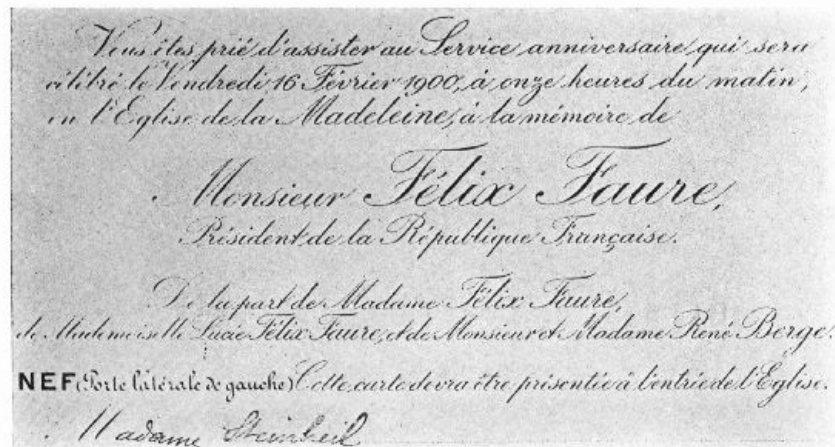 Vous êtes prié d'assister au Service anniversaire, qui sera
célébré le Vendredi 16 Février 1900, à onze heures du matin,
en l'Eglise de la Madeleine, à la mémoire de
Monsieur Félix Faure,
Président de la République Française.
De la part de Madame Félix Faure,
de Mademoiselle Lucie Félix Faure, et de Monsieur et Madame René Berge.
NEF (Porte latérale de gauche) Cette carte devra être présentée à l'entrée de l'Eglise.
Madame Steinheil